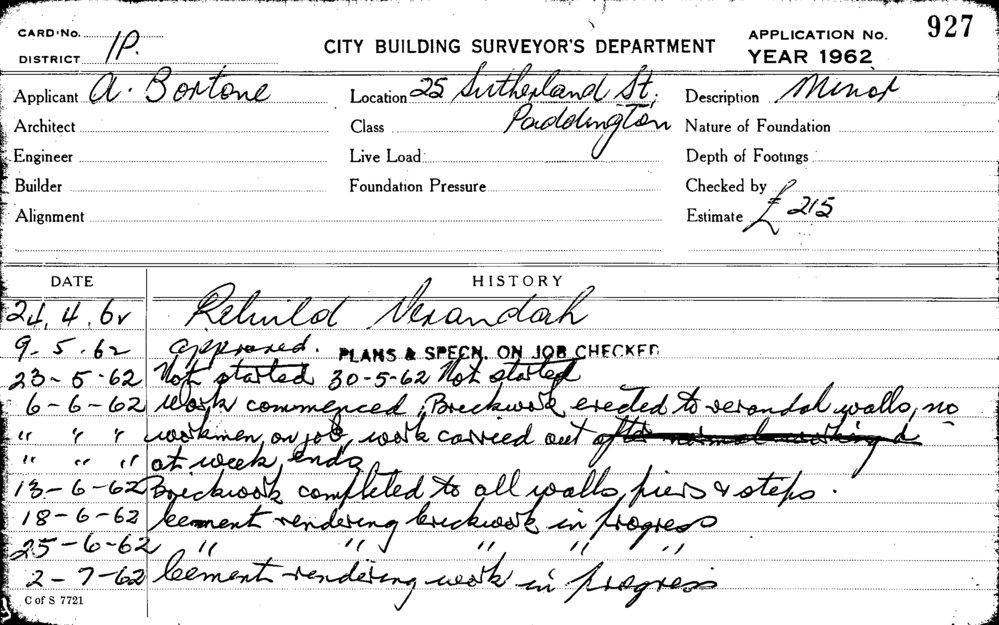 CARD No.
DISTRICT 1P.
CITY BUILDING SURVEYOR'S DEPARTMENT
APPLICATION No. 927
YEAR 1962
Applicant A. Bortone
Location 25 Sutherland St,
Description Minor
Architect
Class Paddington
Nature of Foundation
Engineer
Live Load
Depth of Footings
Builder
Foundation Pressure
Checked by
Alignment
Estimate £215
DATE HISTORY
24.4.62 Rebuild Verandah
9.5.62 approved. PLANS & SPECN. ON JOB CHECKED
23-5-62 Not started 30-5-62 Not started
6-6-62 Work commenced, Brickwork erected to verandah walls, no
" " " workmen on job, work carried out after normal working
" " " at week ends
13-6-62 Brickwork completed to all walls, piers & steps.
18-6-62 Cement rendering brickwork in progress
25-6-62 " " " " "
2-7-62 Cement rendering work in progress
C of S 7721